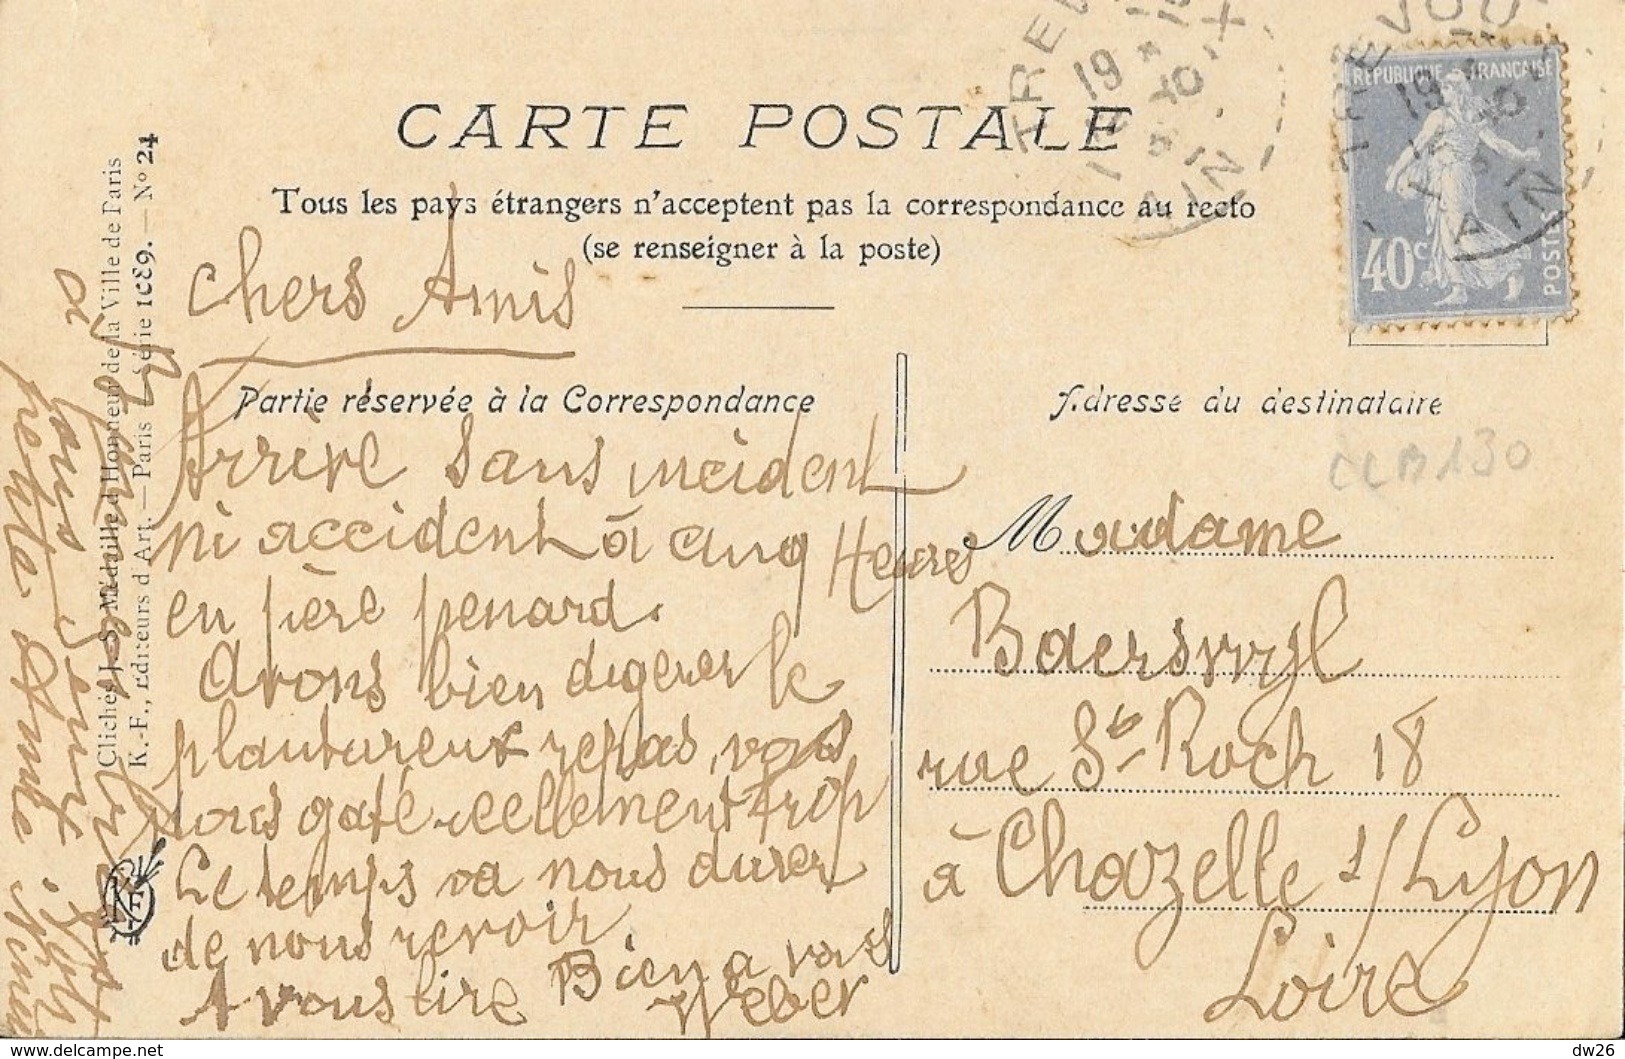 CARTE POSTALE
Tous les pays étrangers n'acceptent pas la correspondance au recto
(se renseigner à la poste)
TREV
19
AIN
TREVOU
19
AIN
RÉPUBLIQUE FRANÇAISE
40c
POSTES
Partie réservée à la Correspondance
Adresse du destinataire
CLB130
Chers Amis
Arrivé sans incident
ni accident à cinq Heures
en père penard.
Avons bien digerer le
plantureux repas, vous
nous gaté reellement trop
Le temps va nous durer
de nous revoir.
A vous lire Bien a vous
Weber
Madame
Baerswyl
rue St-Roch 18
à Chazelle s/Lyon
Loire
Clichés J. S. Médaille d'Honneur de la Ville de Paris
K.-F., Éditeurs d'Art. — Paris — Série 1089. — No 24
KF
petite
dw26